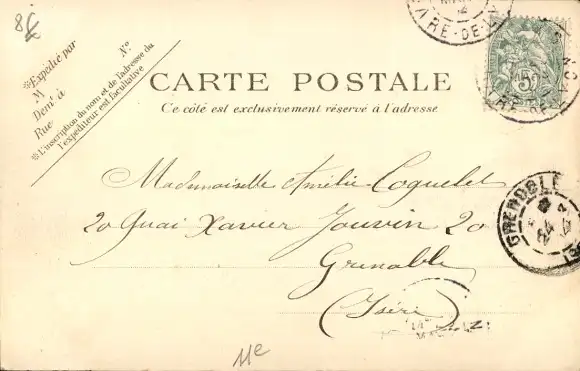 8
*Expédié par
M
Demt à
Rue N°
*L'inscription du nom et de l'adresse du
l'expéditeur est facultative
CARTE POSTALE
Ce côté est exclusivement réservé à l'adresse
5
Mademoiselle Amélie Coquelet
20 Quai Xavier Jouvin 20
Grenoble
(Isère)
GRENOBLE
11e